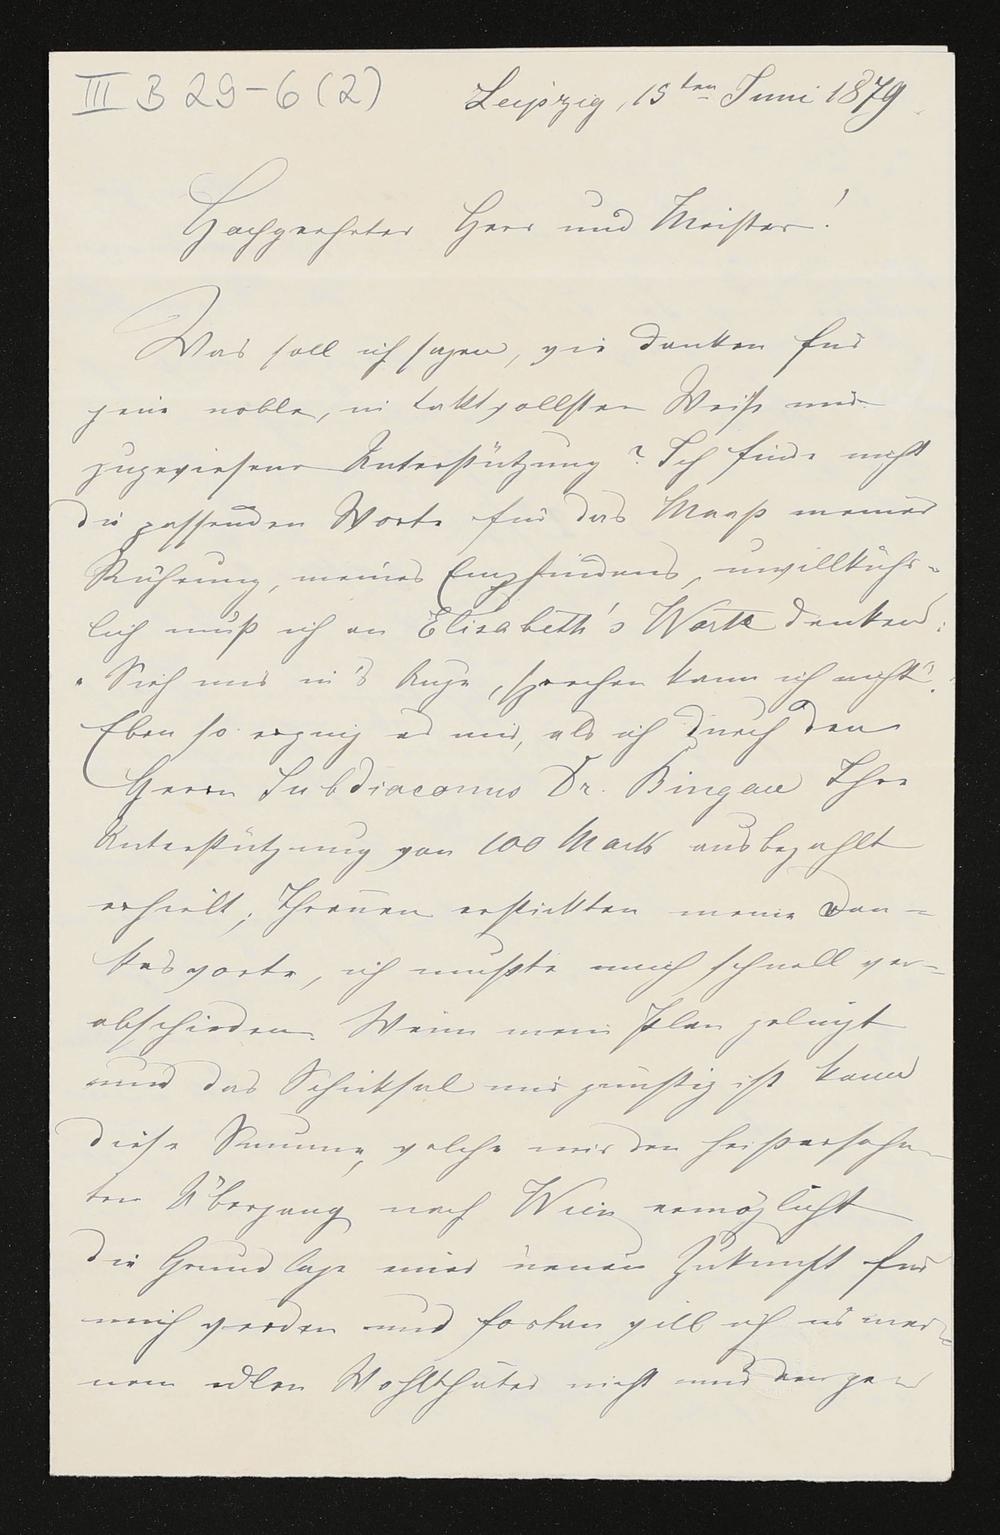 III B 29-6 (2)
Leipzig, 15ten Juni 1879
Hochgeehrter Herr und Meister!
Was soll ich sagen, wie danken für
jene noble, in taktvollster Weise mir
zugewiesene Unterstützung? Ich finde nicht
die passenden Worte für das Maaß meiner
Rührung, meines Empfindens, unwillkühr-
lich muß ich an Elisabeth's Worte denken:
"Sieh mir in's Auge, sprechen kann ich nicht".
Eben so erging es mir, als ich durch den
Herrn Subdiaconus Dr. Ihre
Unterstützung von 100 Mark ausbezahlt
erhielt; Thränen erstickten meine Dan-
kesworte, ich mußte mich schnell ver-
abschieden. Wenn mein Plan gelingt
und das Schicksal mir günstig ist kann
diese Summe, welche mir den heißersehn-
ten Übergang nach Wien ermöglicht
die Grundlage einer neuen Zukunft für
mich werden und fortan will ich in mei-
nem edlen Wohlthäter nicht nur den